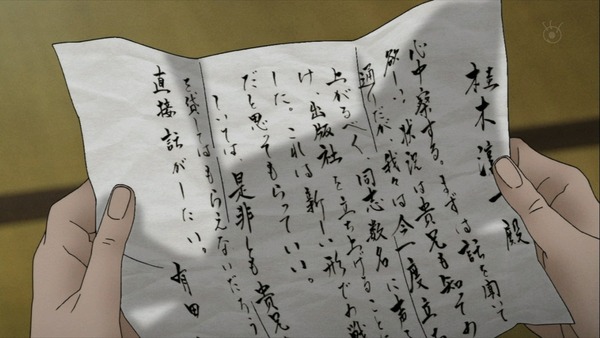 桂木淳一殿
心中察する。まずは話を聞いて
欲しい。状況は貴兄も知ての
通りだが、我々は今一度立ち
上がるべく、同志数名に声
け、出版社を立ち上げることに
した。これは新しい形での戦
だと思ってもらっていい。
ついては、是非とも貴兄
を貸してはもらえないだろう
直接話がしたい。
有田